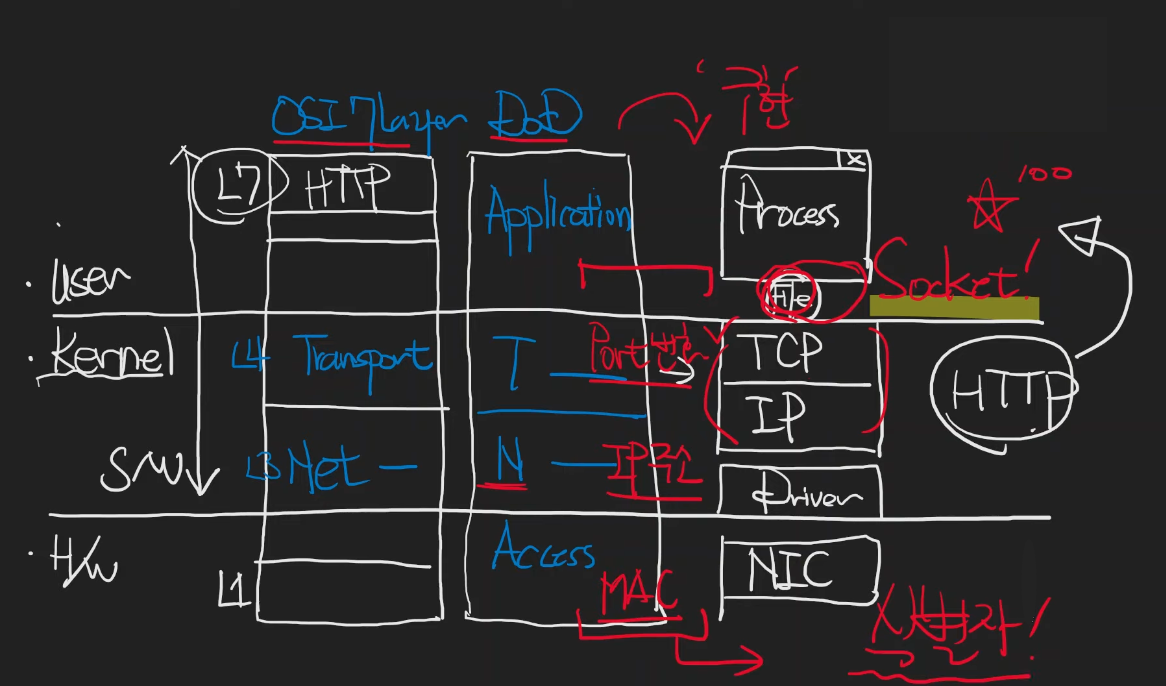 구현
OSI 7 Layer DoD
L7 HTTP
Application
Process
X
100
User
File
Socket!
Kernel
L4 Transport
T
Port번호
TCP
HTTP
IP
S/W
L3 Net
N
Driver
H/W
Access
NIC
L1
MAC
식별자!